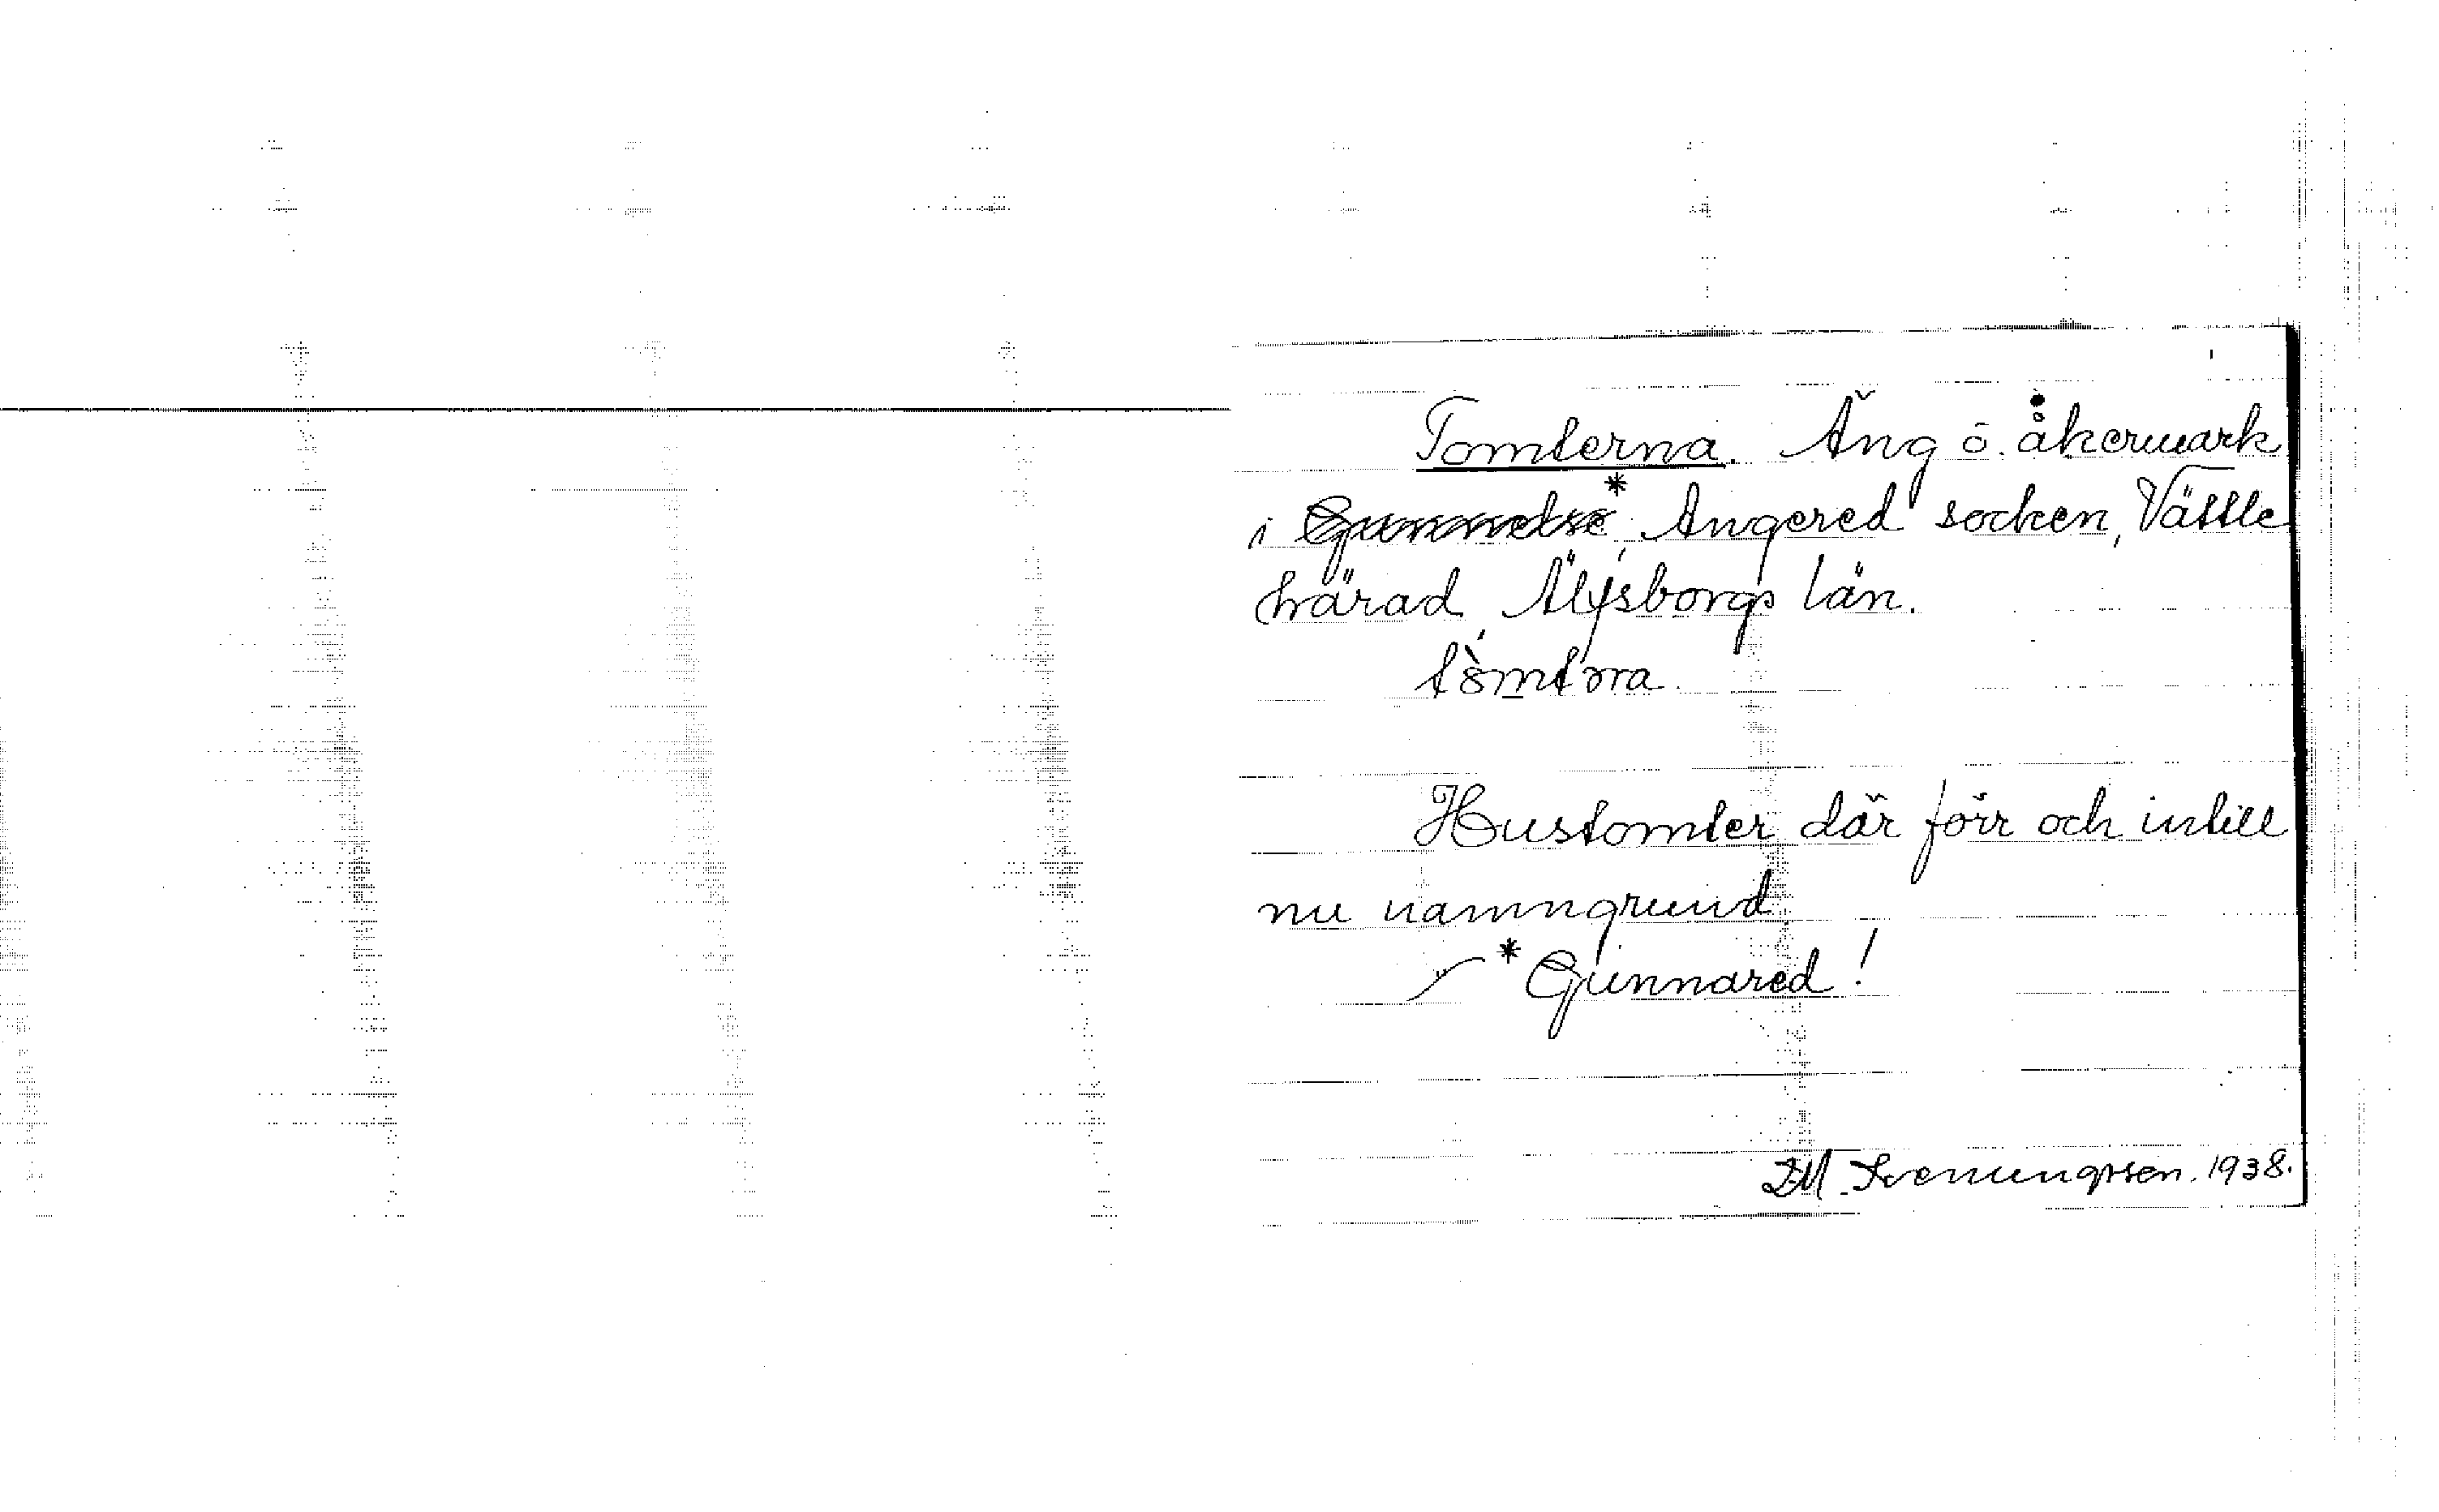 Tomterna. Äng o. åkermark
i Gunnelse*, Angered socken, Vättle
härad, Älfsborgs län.
tòmtɔra.
Hustomter där förr och intill
nu namngrund.
*Gunnared!
Svenungsson. 1938.